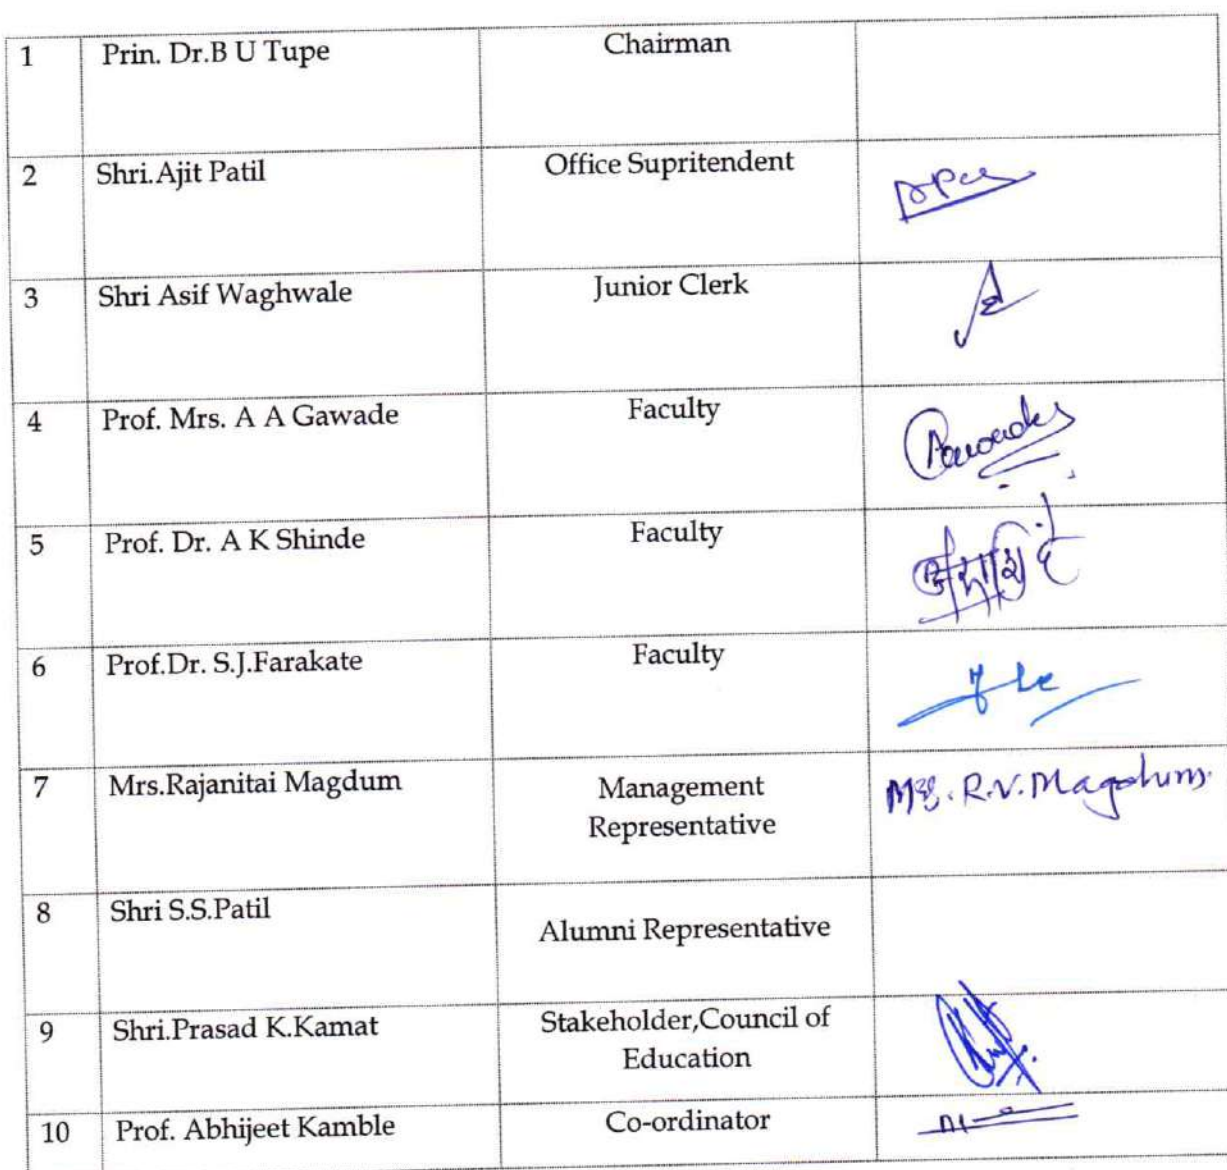 1 Prin. Dr.B U Tupe Chairman
2 Shri.Ajit Patil Office Supritendent
3 Shri Asif Waghwale Junior Clerk
4 Prof. Mrs. A A Gawade Faculty
5 Prof. Dr. A K Shinde Faculty
6 Prof.Dr. S.J.Farakate Faculty
7 Mrs.Rajanitai Magdum Management Representative Mrs. R.V. Magdum.
8 Shri S.S.Patil Alumni Representative
9 Shri.Prasad K.Kamat Stakeholder,Council of Education
10 Prof. Abhijeet Kamble Co-ordinator